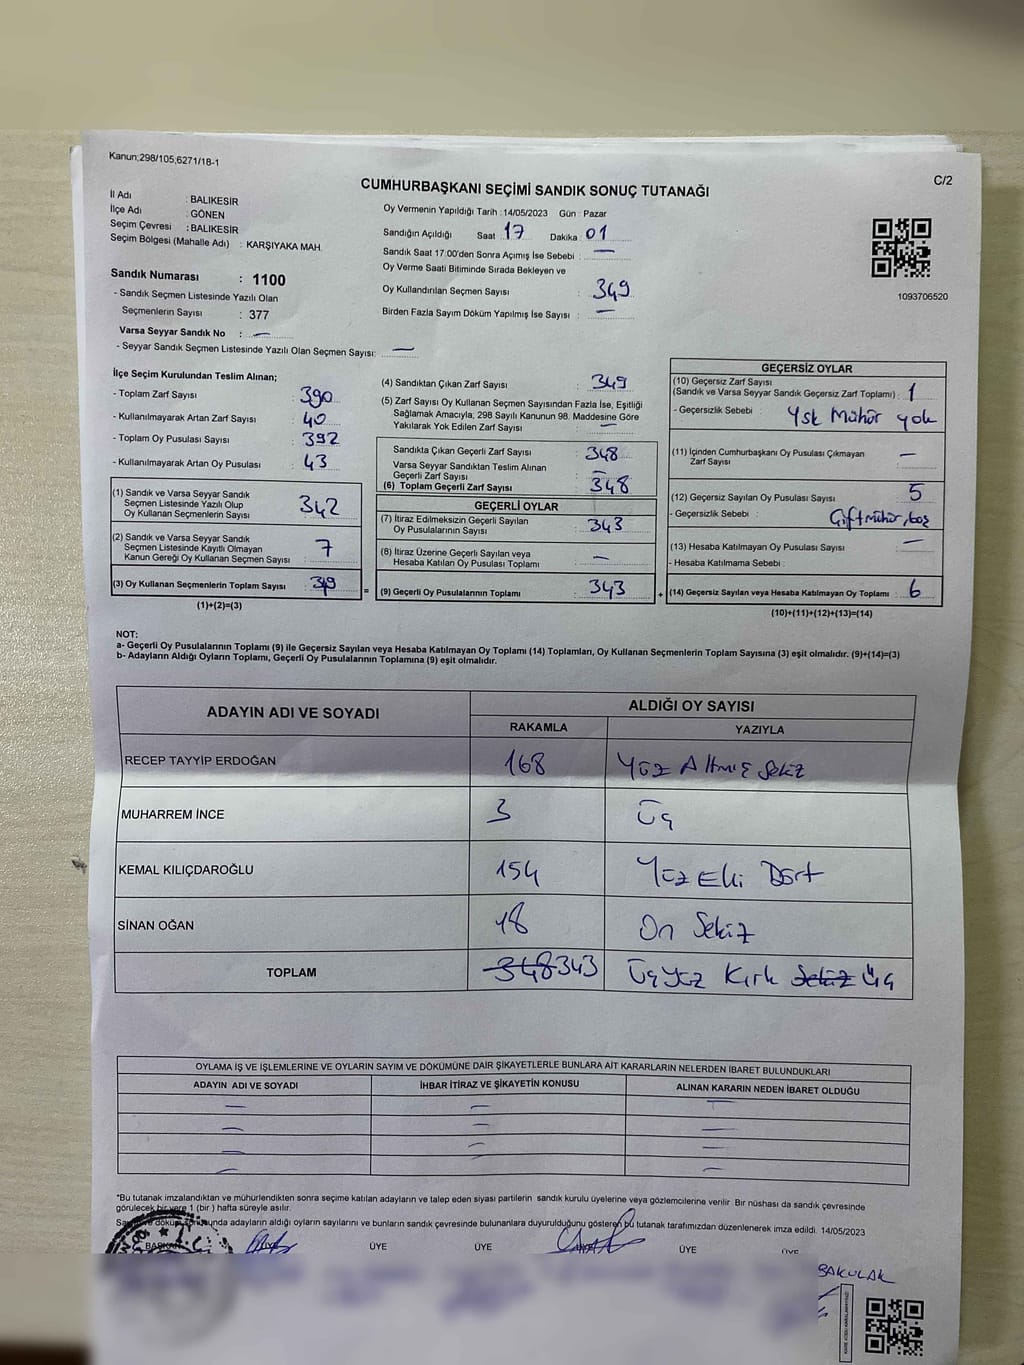 Kanun;298/105,6271/18-1
CUMHURBAŞKANI SEÇİMİ SANDIK SONUÇ TUTANAĞI
C/2
İl Adı : BALIKESİR
İlçe Adı : GÖNEN
Seçim Çevresi : BALIKESİR
Seçim Bölgesi (Mahalle Adı) : KARŞIYAKA MAH.
Sandık Numarası : 1100
- Sandık Seçmen Listesinde Yazılı Olan
Seçmenlerin Sayısı : 377
Varsa Seyyar Sandık No : —
- Seyyar Sandık Seçmen Listesinde Yazılı Olan Seçmen Sayısı: —
Oy Vermenin Yapıldığı Tarih : 14/05/2023 Gün : Pazar
Sandığın Açıldığı Saat 17 Dakika 01
Sandık Saat 17:00'den Sonra Açımış İse Sebebi : —
Oy Verme Saati Bitiminde Sırada Bekleyen ve
Oy Kullandırılan Seçmen Sayısı : 349
Birden Fazla Sayım Döküm Yapılmış İse Sayısı : —
1093706520
İlçe Seçim Kurulundan Teslim Alınan;
- Toplam Zarf Sayısı : 390
- Kullanılmayarak Artan Zarf Sayısı : 40
- Toplam Oy Pusulası Sayısı : 392
- Kullanılmayarak Artan Oy Pusulası : 43
(1) Sandık ve Varsa Seyyar Sandık
Seçmen Listesinde Yazılı Olup
Oy Kullanan Seçmenlerin Sayısı : 342
(2) Sandık ve Varsa Seyyar Sandık
Seçmen Listesinde Kayıtlı Olmayan
Kanun Gereği Oy Kullanan Seçmen Sayısı : 7
(3) Oy Kullanan Seçmenlerin Toplam Sayısı : 349
(1)+(2)=(3)
(4) Sandıktan Çıkan Zarf Sayısı : 349
(5) Zarf Sayısı Oy Kullanan Seçmen Sayısından Fazla İse, Eşitliği
Sağlamak Amacıyla, 298 Sayılı Kanunun 98. Maddesine Göre
Yakılarak Yok Edilen Zarf Sayısı : —
Sandıkta Çıkan Geçerli Zarf Sayısı : 348
Varsa Seyyar Sandıktan Teslim Alınan
Geçerli Zarf Sayısı : —
(6) Toplam Geçerli Zarf Sayısı : 348
GEÇERLİ OYLAR
(7) İtiraz Edilmeksizin Geçerli Sayılan
Oy Pusulalarının Sayısı : 343
(8) İtiraz Üzerine Geçerli Sayılan veya
Hesaba Katılan Oy Pusulası Toplamı : —
= (9) Geçerli Oy Pusulalarının Toplamı : 343
GEÇERSİZ OYLAR
(10) Geçersiz Zarf Sayısı
(Sandık ve Varsa Seyyar Sandık Geçersiz Zarf Toplamı) : 1
- Geçersizlik Sebebi : Ysk Mühür yok
(11) İçinden Cumhurbaşkanı Oy Pusulası Çıkmayan
Zarf Sayısı : —
(12) Geçersiz Sayılan Oy Pusulası Sayısı : 5
- Geçersizlik Sebebi : Çift mühür, boş
(13) Hesaba Katılmayan Oy Pusulası Sayısı : —
- Hesaba Katılmama Sebebi :
+ (14) Geçersiz Sayılan veya Hesaba Katılmayan Oy Toplamı : 6
(10)+(11)+(12)+(13)=(14)
NOT:
a- Geçerli Oy Pusulalarının Toplamı (9) ile Geçersiz Sayılan veya Hesaba Katılmayan Oy Toplamı (14) Toplamları, Oy Kullanan Seçmenlerin Toplam Sayısına (3) eşit olmalıdır. (9)+(14)=(3)
b- Adayların Aldığı Oyların Toplamı, Geçerli Oy Pusulalarının Toplamına (9) eşit olmalıdır.
ADAYIN ADI VE SOYADI
ALDIĞI OY SAYISI
RAKAMLA YAZIYLA
RECEP TAYYİP ERDOĞAN 168 Yüz Altmış Sekiz
MUHARREM İNCE 3 Üç
KEMAL KILIÇDAROĞLU 154 Yüz Elli Dört
SİNAN OĞAN 18 On Sekiz
TOPLAM 348 343 Üçyüz Kırk Sekiz Üç
OYLAMA İŞ VE İŞLEMLERİNE VE OYLARIN SAYIM VE DÖKÜMÜNE DAİR ŞİKAYETLERLE BUNLARA AİT KARARLARIN NELERDEN İBARET BULUNDUKLARI
ADAYIN ADI VE SOYADI İHBAR İTİRAZ VE ŞİKAYETİN KONUSU ALINAN KARARIN NEDEN İBARET OLDUĞU
— — —
— — —
— — —
— — —
*Bu tutanak imzalandıktan ve mühürlendikten sonra seçime katılan adayların ve talep eden siyasi partilerin sandık kurulu üyelerine veya gözlemcilerine verilir Bir nüshası da sandık çevresinde
görülecek bir yere 1 (bir ) hafta süreyle asılır.
döküm sonucunda adayların aldığı oyların sayılarını ve bunların sandık çevresinde bulunanlara duyurulduğunu gösteren bu tutanak tarafımızdan düzenlenerek imza edildi. 14/05/2023
BAŞKAN ÜYE ÜYE ÜYE ÜYE ÜYE
BAKULAK